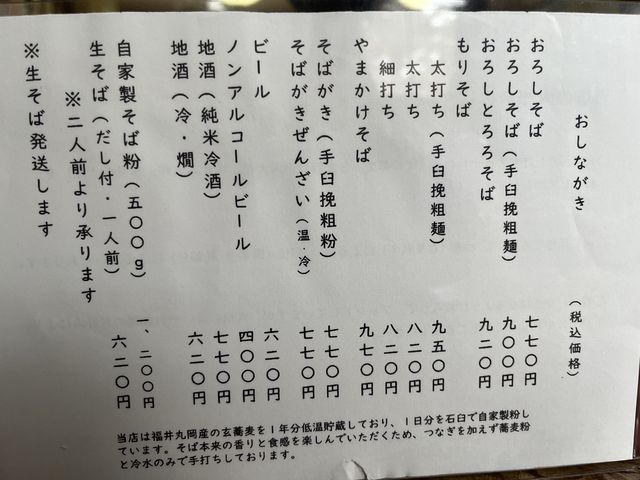 おしながき　（税込価格）
おろしそば　七七〇円
おろしそば（手臼挽粗麺）　九〇〇円
おろしとろろそば　九二〇円
もりそば
太打ち（手臼挽粗麺）　九五〇円
太打ち　八二〇円
細打ち　八二〇円
やまかけそば　九七〇円
そばがき（手臼挽粗粉）　七七〇円
そばがきぜんざい（温・冷）　七七〇円
ビール　六二〇円
ノンアルコールビール　四〇〇円
地酒（純米冷酒）　七七〇円
地酒（冷・燗）　六二〇円
自家製そば粉（五〇〇g）　一、二〇〇円
生そば（だし付・一人前）　六二〇円
※二人前より承ります
※生そば発送します
当店は福井丸岡産の玄蕎麦を１年分低温貯蔵しており、１日分を石臼で自家製粉し
ています。そば本来の香りと食感を楽しんでいただくため、つなぎを加えず蕎麦粉
と冷水のみで手打ちしております。